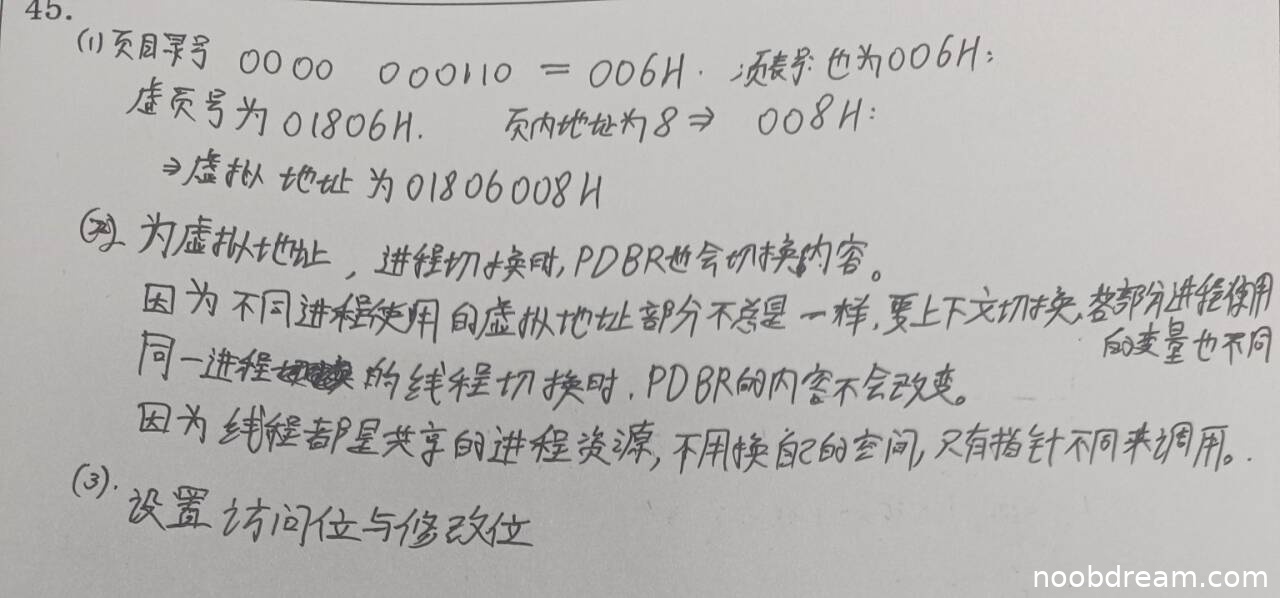 45.
(1)页目录号 0000 000110 = 006H. 页表号也为006H;
虚页号为01806H. 页内地址为8⇒ 008H:
⇒虚拟地址为01806008H
(2) 为虚拟地址,进程切换时,PDBR也会切换内容。
因为不同进程使用的虚拟地址部分不总是一样,要上下文切换,各部分进程使用
的变量也不同
同一进程的线程切换时,PDBR的内容不会改变。
因为线程都是共享的进程资源,不用换自己的空间,只有指针不同来调用。.
(3).
设置访问位与修改位
noobdream.com